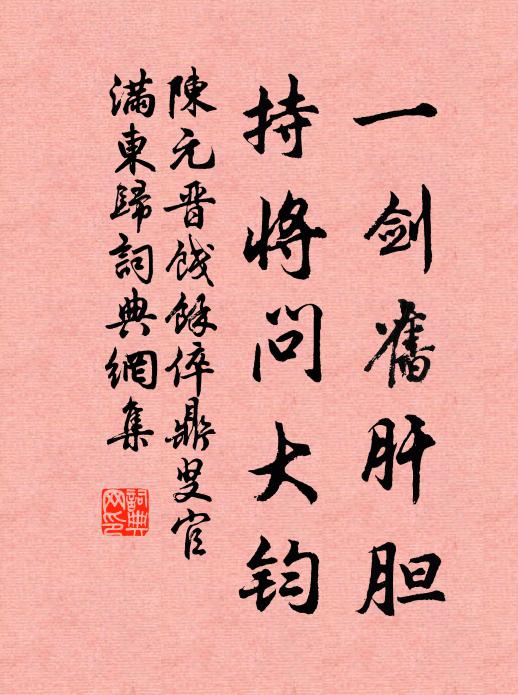 一剑舊肝胆
持将问大钧
陳元晋餞餘倅鼎叟官
滿東歸詞典網集
詞典網印